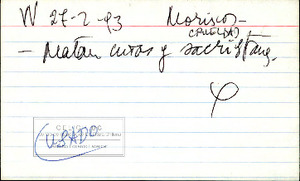 W 27-2-93 Moriscos-
(CRUELDAD)
- Matan curas y sacristanes.
USADO